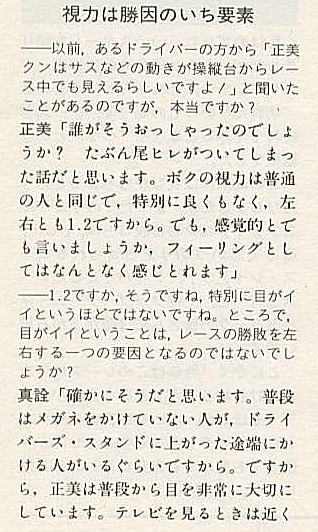 視力は勝因のいち要素
――以前，あるドライバーの方から「正美
クンはサスなどの動きが操縦台からレー
ス中でも見えるらしいですよ！」と聞いた
ことがあるのですが，本当ですか？
正美「誰がそうおっしゃったのでしょ
うか？　たぶん尾ヒレがついてしまっ
た話だと思います。ボクの視力は普通
の人と同じで，特別に良くもなく，左
右とも1.2ですから。でも，感覚的とで
も言いましょうか，フィーリングとし
てはなんとなく感じとれます」
――1.2ですか，そうですね，特別に目がイ
イというほどではないですね。ところで，
目がイイということは，レースの勝敗を左
右する一つの要因となるのではないでし
ょうか？
真詮「確かにそうだと思います。普段
はメガネをかけていない人が，ドライ
バーズ・スタンドに上がった途端にか
ける人がいるぐらいですから。ですか
ら，正美は普段から目を非常に大切に
しています。テレビを見るときは近く